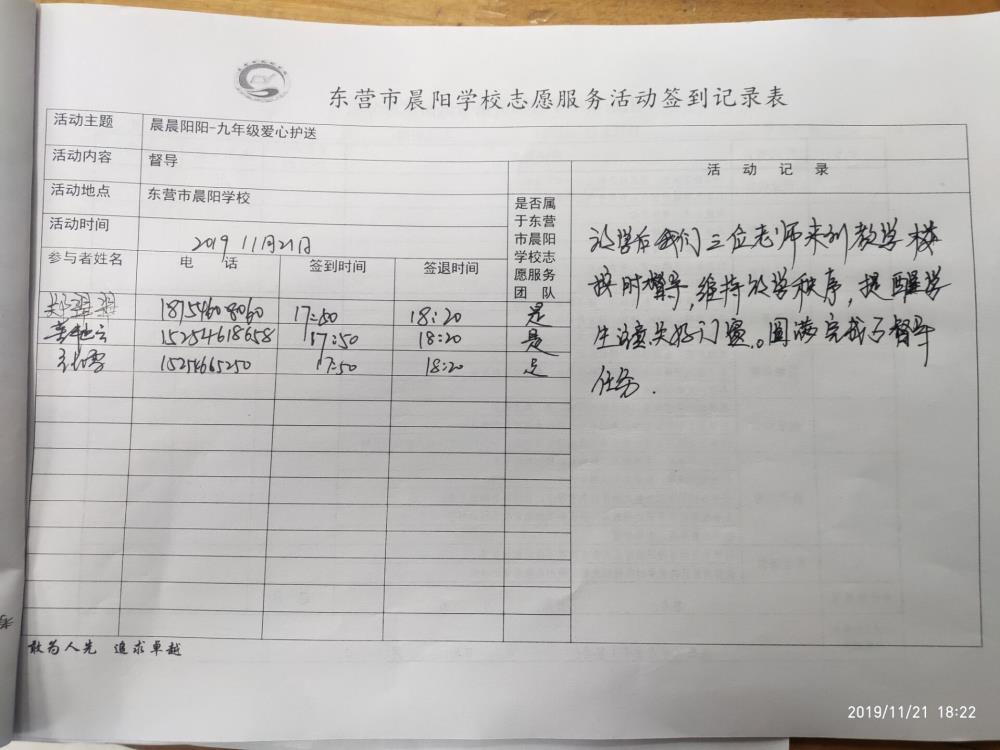 东营市晨阳学校志愿服务活动签到记录表
活动主题 晨晨阳阳-九年级爱心护送
活动内容 督导
活动地点 东营市晨阳学校
活动时间 2019 11月21日
参与者姓名 电 话 签到时间 签退时间 是否属于东营市晨阳学校志愿服务团 队 活 动 记 录
17:50 18:20 是
15254618658 17:50 18:20 是
15254665250 17:50 18:20 是
放学后我们三位老师来到教学楼
按时督导,维持放学秩序,提醒学
生注意关好门窗。圆满完成了督导
任务.
敢为人先 追求卓越
2019/11/21 18:22